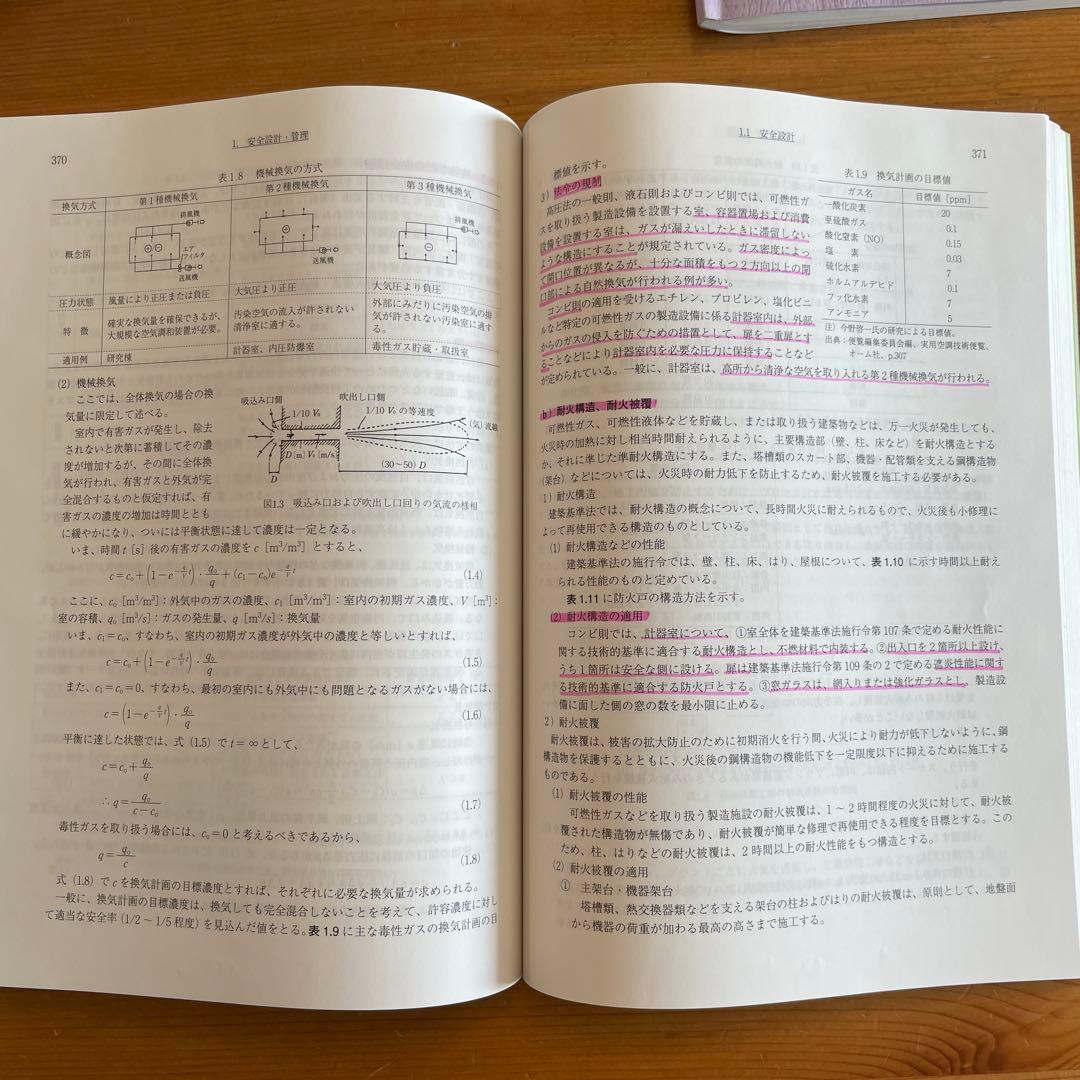 370
1. 安全設計・管理
表1.8 機械換気の方式
換気方式 第1種機械換気 第2種機械換気 第3種機械換気
概念図 排風機 エアフィルタ 送風機 送風機 排風機
圧力状態 風量により正圧または負圧 大気圧より正圧 大気圧より負圧
特徴 確実な換気量を確保できるが、大規模な空気調和装置が必要。 汚染空気の流入が許されない清浄室に適する。 外部にみだりに汚染空気の排気が許されない汚染室に適する。
適用例 研究棟 計器室、内圧防爆室 毒性ガス貯蔵・取扱室
(2) 機械換気
ここでは、全体換気の場合の換
気量に限定して述べる。
室内で有害ガスが発生し、除去
されないと次第に蓄積してその濃
度が増加するが、その間に全体換
気が行われ、有害ガスと外気が完
全混合するものと仮定すれば、有
害ガスの濃度の増加は時間ととも
に緩やかになり、ついには平衡状態に達して濃度は一定となる。
吸込み口側 吹出し口側
1/10 V₀ 1/10 V₀ の等速度
(気)流線
D[m] V₀[m/s]
(30～50) D
D
図1.3 吸込み口および吹出し口回りの気流の様相
いま、時間 t [s] 後の有害ガスの濃度を c [m³/m³] とすると、
c=c₀+(1−e^{−(q/V)t})・q₀/q+(c₁−c₀)e^{−(q/V)t} (1.4)
ここに、c₀ [m³/m³]:外気中のガスの濃度、c₁ [m³/m³]:室内の初期ガス濃度、V [m³]:
室の容積、q₀ [m³/s]:ガスの発生量、q [m³/s]:換気量
いま、c₁=c₀、すなわち、室内の初期ガス濃度が外気中の濃度と等しいとすれば、
c=c₀+(1−e^{−(q/V)t})・q₀/q (1.5)
また、c₁=c₀=0、すなわち、最初の室内にも外気中にも問題となるガスがない場合には、
c=(1−e^{−(q/V)t})・q₀/q (1.6)
平衡に達した状態では、式 (1.5) で t=∞ として、
c=c₀+q₀/q
∴ q=q₀/(c−c₀) (1.7)
毒性ガスを取り扱う場合には、c₀=0 と考えるべきであるから、
q=q₀/c (1.8)
式 (1.8) で c を換気計画の目標濃度とすれば、それぞれに必要な換気量が求められる。
一般に、換気計画の目標濃度は、換気しても完全混合しないことを考えて、許容濃度に対し
て適当な安全率 (1/2～1/5程度) を見込んだ値をとる。表1.9に主な毒性ガスの換気計画の目
1.1 安全設計
371
標値を示す。
3) 法令の規制
高圧法の一般則、液石則およびコンビ則では、可燃性ガ
スを取り扱う製造設備を設置する室、容器置場および消費
設備を設置する室は、ガスが漏えいしたときに滞留しない
ような構造にすることが規定されている。ガス密度によっ
て開口位置が異なるが、十分な面積をもつ2方向以上の開
口部による自然換気が行われる例が多い。
コンビ則の適用を受けるエチレン、プロピレン、塩化ビニ
ルなど特定の可燃性ガスの製造設備に係る計器室内は、外部
からのガスの侵入を防ぐための措置として、扉を二重扉とす
ることなどにより計器室内を必要な圧力に保持することなど
が定められている。一般に、計器室は、高所から清浄な空気を取り入れる第2種機械換気が行われる。
表1.9 換気計画の目標値
ガス名 目標値 [ppm]
一酸化炭素 20
亜硫酸ガス 0.1
酸化窒素 (NO) 0.15
塩素 0.03
硫化水素 7
ホルムアルデヒド 0.1
フッ化水素 7
アンモニア 5
注) 今野啓一氏の研究による目標値。
出典:便覧編集委員会編、実用空調技術便覧、
オーム社、p.307
b) 耐火構造、耐火被覆
可燃性ガス、可燃性液体などを貯蔵し、または取り扱う建築物などは、万一火災が発生しても、
火災時の加熱に対し相当時間耐えられるように、主要構造部 (壁、柱、床など) を耐火構造とする
か、それに準じた準耐火構造にする。また、塔槽類のスカート部、機器・配管類を支える鋼構造物
(架台) などについては、火災時の耐力低下を防止するため、耐火被覆を施工する必要がある。
1) 耐火構造
建築基準法では、耐火構造の概念について、長時間火災に耐えられるもので、火災後も小修理に
よって再使用できる構造のものとしている。
(1) 耐火構造などの性能
建築基準法の施行令では、壁、柱、床、はり、屋根について、表1.10 に示す時間以上耐え
られる性能のものと定めている。
表1.11に防火戸の構造方法を示す。
(2) 耐火構造の適用
コンビ則では、計器室について、①室全体を建築基準法施行令第107条で定める耐火性能に
関する技術的基準に適合する耐火構造とし、不燃材料で内装する。②出入口を2箇所以上設け、
うち1箇所は安全な側に設ける。扉は建築基準法施行令第109条の2で定める遮炎性能に関す
る技術的基準に適合する防火戸とする。③窓ガラスは、網入りまたは強化ガラスとし、製造設
備に面した側の窓の数を最小限に止める。
2) 耐火被覆
耐火被覆は、被害の拡大防止のために初期消火を行う間、火災により耐力が低下しないように、鋼
構造物を保護するとともに、火災後の鋼構造物の機能低下を一定限度以下に抑えるために施工する
ものである。
(1) 耐火被覆の性能
可燃性ガスなどを取り扱う製造施設の耐火被覆は、1～2時間程度の火災に対して、耐火被
覆された構造物が無傷であり、耐火被覆が簡単な修理で再使用できる程度を目標とする。この
ため、柱、はりなどの耐火被覆は、2時間以上の耐火性能をもつ構造とする。
(2) 耐火被覆の適用
① 主架台・機器架台
塔槽類、熱交換器類などを支える架台の柱およびはりの耐火被覆は、原則として、地盤面
から機器の荷重が加わる最高の高さまで施工する。